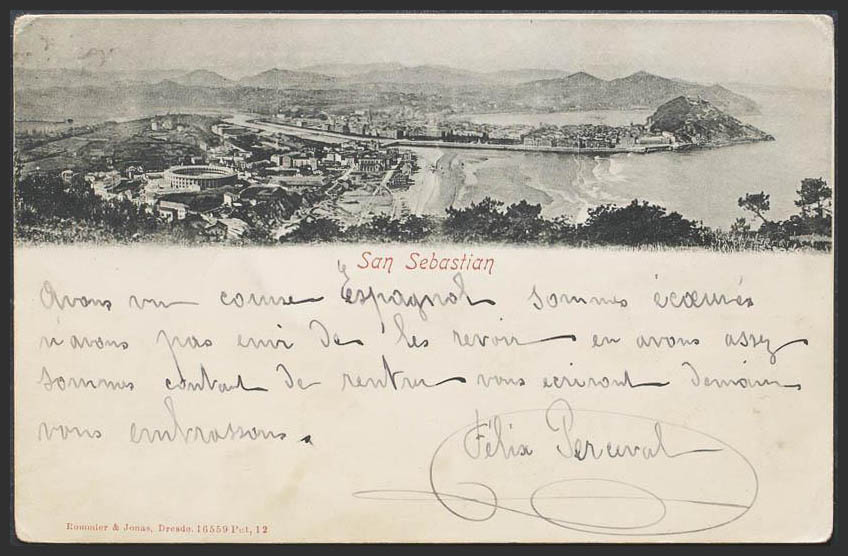 San Sebastian
Avons vu course Espagnol sommes écœurés
n'avons pas envi de les revoir en avons assez
sommes contant de rentrer vous ecriront demain
vous embrassons.
Félix Perceval
Rommler & Jonas, Dresde. 16559 Pat, 12